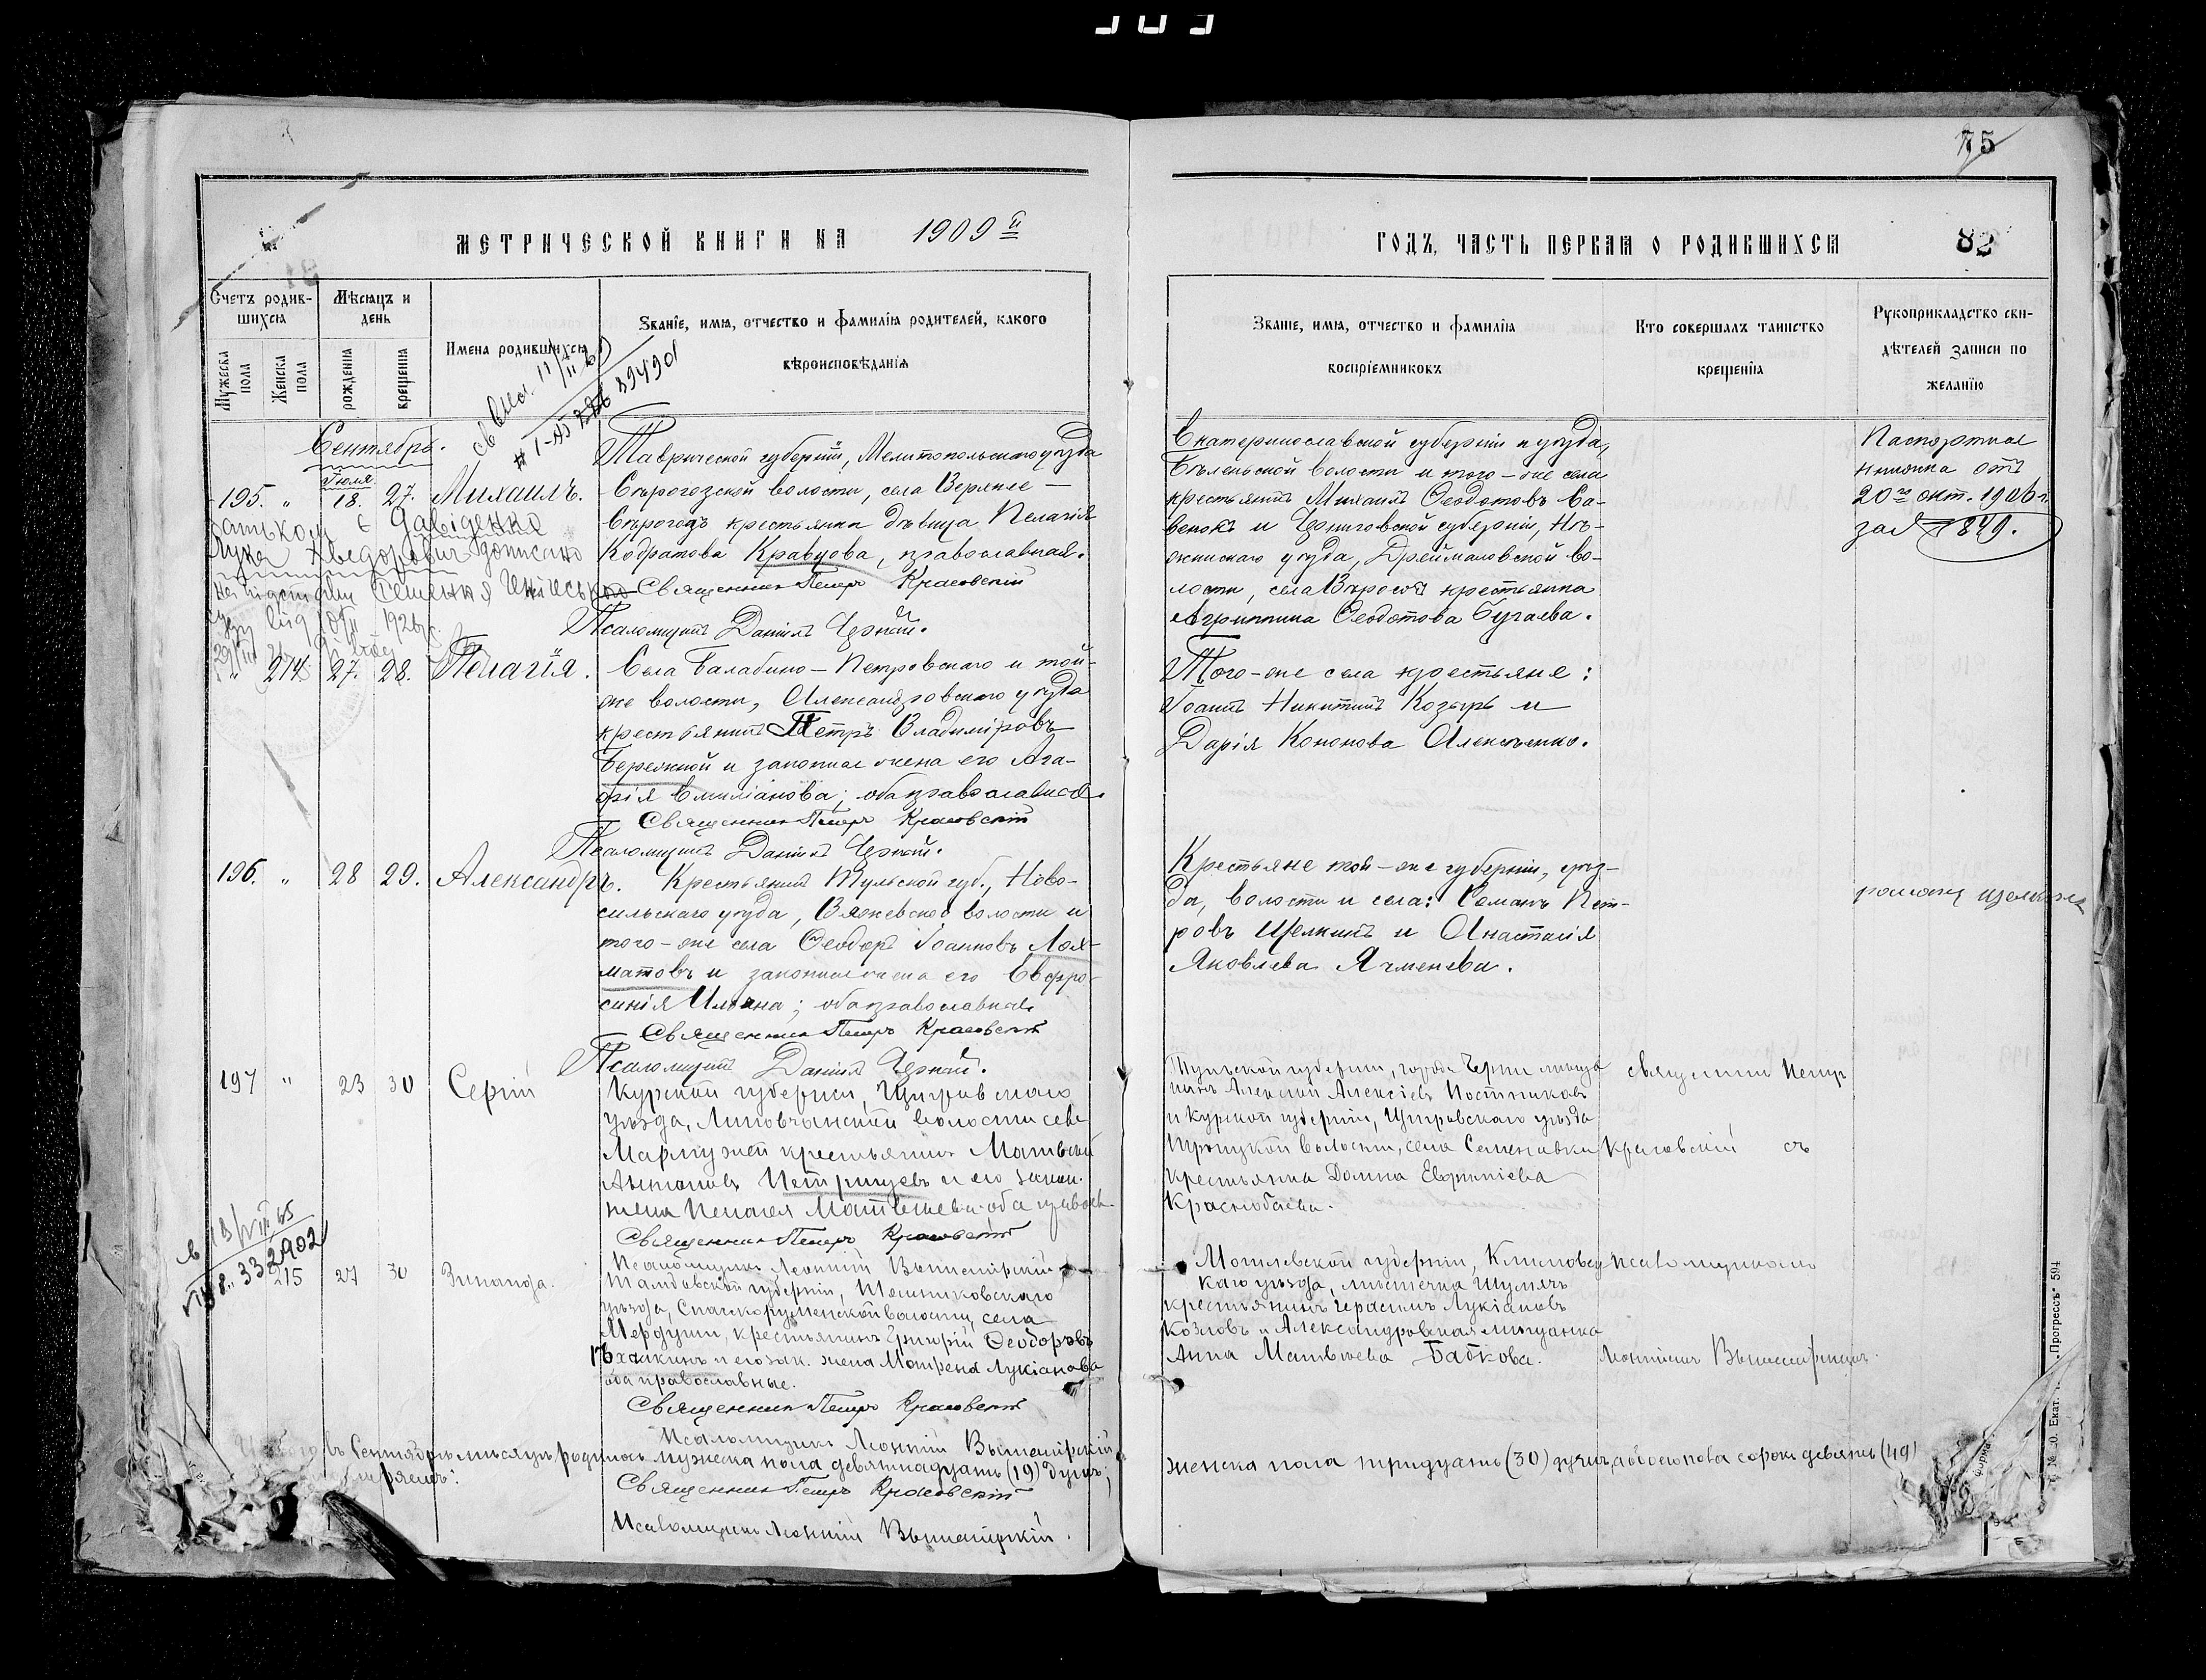 75
МЕТРИЧЕСКОЙ КНИГИ НА 1909й
ГОДЪ, ЧАСТЬ ПЕРВАЯ О РОДИВШИХСЯ
82
Счетъ родив-
шихся
Мужеска пола
Женска пола
Мѣсяцъ и
день
рожденія
крещенія
Имена родившихся
Званіе, имя, отчество и фамилія родителей, какого
вѣроисповѣданія
Званіе, имя, отчество и фамилія
воспріемниковъ
Кто совершалъ таинство
крещенія
Рукоприкладство сви-
дѣтелей записи по
желанію
394901
Сентябрь.
Іюля
195. " 18. 27. Михаилъ.
Таврической губерніи, Мелитопольскаго уѣзда
Сѣрогозской волости, села Верхніе-
Сѣрогозъ крестьянка дѣвица Пелагія
Кодратова Кравцова, православная.
Священникъ Петръ Красовскій
Псаломщикъ Даніилъ Чорный.
батьком є Давіденко
Лука Хведорович дописано
на підставі
1926 р.
Екатеринославской губерніи и уѣзда,
Бѣленьской волости и того-же села
крестьянинъ Михаилъ Ѳеодотовъ Са-
венокъ и Черниговской губерніи, Нѣ-
жинскаго уѣзда, Дреймаловской во-
лости, села крестьянка
Агриппина Ѳеодотова Бугаева.
Паспортная
книжка отъ
20го окт. 1906 г.
за № 849.
" 214. 27. 28. Пелагія.
Села Балабино-Петровскаго и той-
же волости, Александровскаго уѣзда
крестьянинъ Петръ Владиміровъ
Бережной и законная жена его Ага-
фія Емиліанова; оба православные.
Священникъ Петръ Красовскій
Псаломщикъ Даніилъ Чорный.
Того-же села крестьяне:
Іоаннъ Никитинъ Козырь и
Дарія Кононова Алексѣенко.
196. " 28 29. Александръ.
Крестьянинъ Тульской губ., Ново-
сильскаго уѣзда, Вяжевской волости и
того-же села Ѳеодоръ Іоанновъ Лох-
матовъ и законная жена его Евфро-
синія Ильина; оба православные
Священникъ Петръ Красовскій
Псаломщикъ Даніилъ Чорный.
Крестьяне той-же губерніи, уѣз-
да, волости и села: Романъ Пет-
ровъ Щелкинъ и Анастасія
Яковлева Ячменева.
197 " 23 30 Сергій
Курской губерніи, Щигровскаго
уѣзда, Липовчанской волости села
Мармужей крестьянинъ Матвѣй
Антоновъ Петрищевъ и его закон.
жена Пелагея Матвѣева оба правосл.
Священникъ Петръ Красовскій
Псаломщикъ Леонтій Вышемірскій
Тульской губерніи, города Черни мѣща
нинъ Алексій Алексіевъ Постниковъ
и Курской губерніи, Щигровскаго уѣзда
Троицкой волости, села Семеновки
крестьянка Домна Евфиміева
Краснобаева.
священникъ Петръ
Красовскій съ
332902
215 27 30 Зинаида.
Тамбовской губерніи, Темниковскаго
уѣзда, волости, села
крестьянинъ Григорій Ѳеодоровъ
и его зак. жена Матрена Лукіанова
оба православные.
Священникъ Петръ Красовскій
Псаломщикъ Леонтій Вышемірскій
Могилевской губерніи, Климовец
каго уѣзда, мѣстечка Шумячъ
крестьянинъ Герасимъ Лукіановъ
Козловъ и Александровская мѣщанка
Анна Матвѣева Бабкова.
псаломщикомъ
Леонтіемъ Вышемірскимъ.
въ Сентябрѣ мѣсяцѣ родилось мужеска пола девятнадцать (19) душъ,
женска пола тридцать (30) душъ, а обоего пола сорокъ девять (49)
Священникъ Петръ Красовскій
Псаломщикъ Леонтій Вышемірскій.
„Прогрессъ“ 594